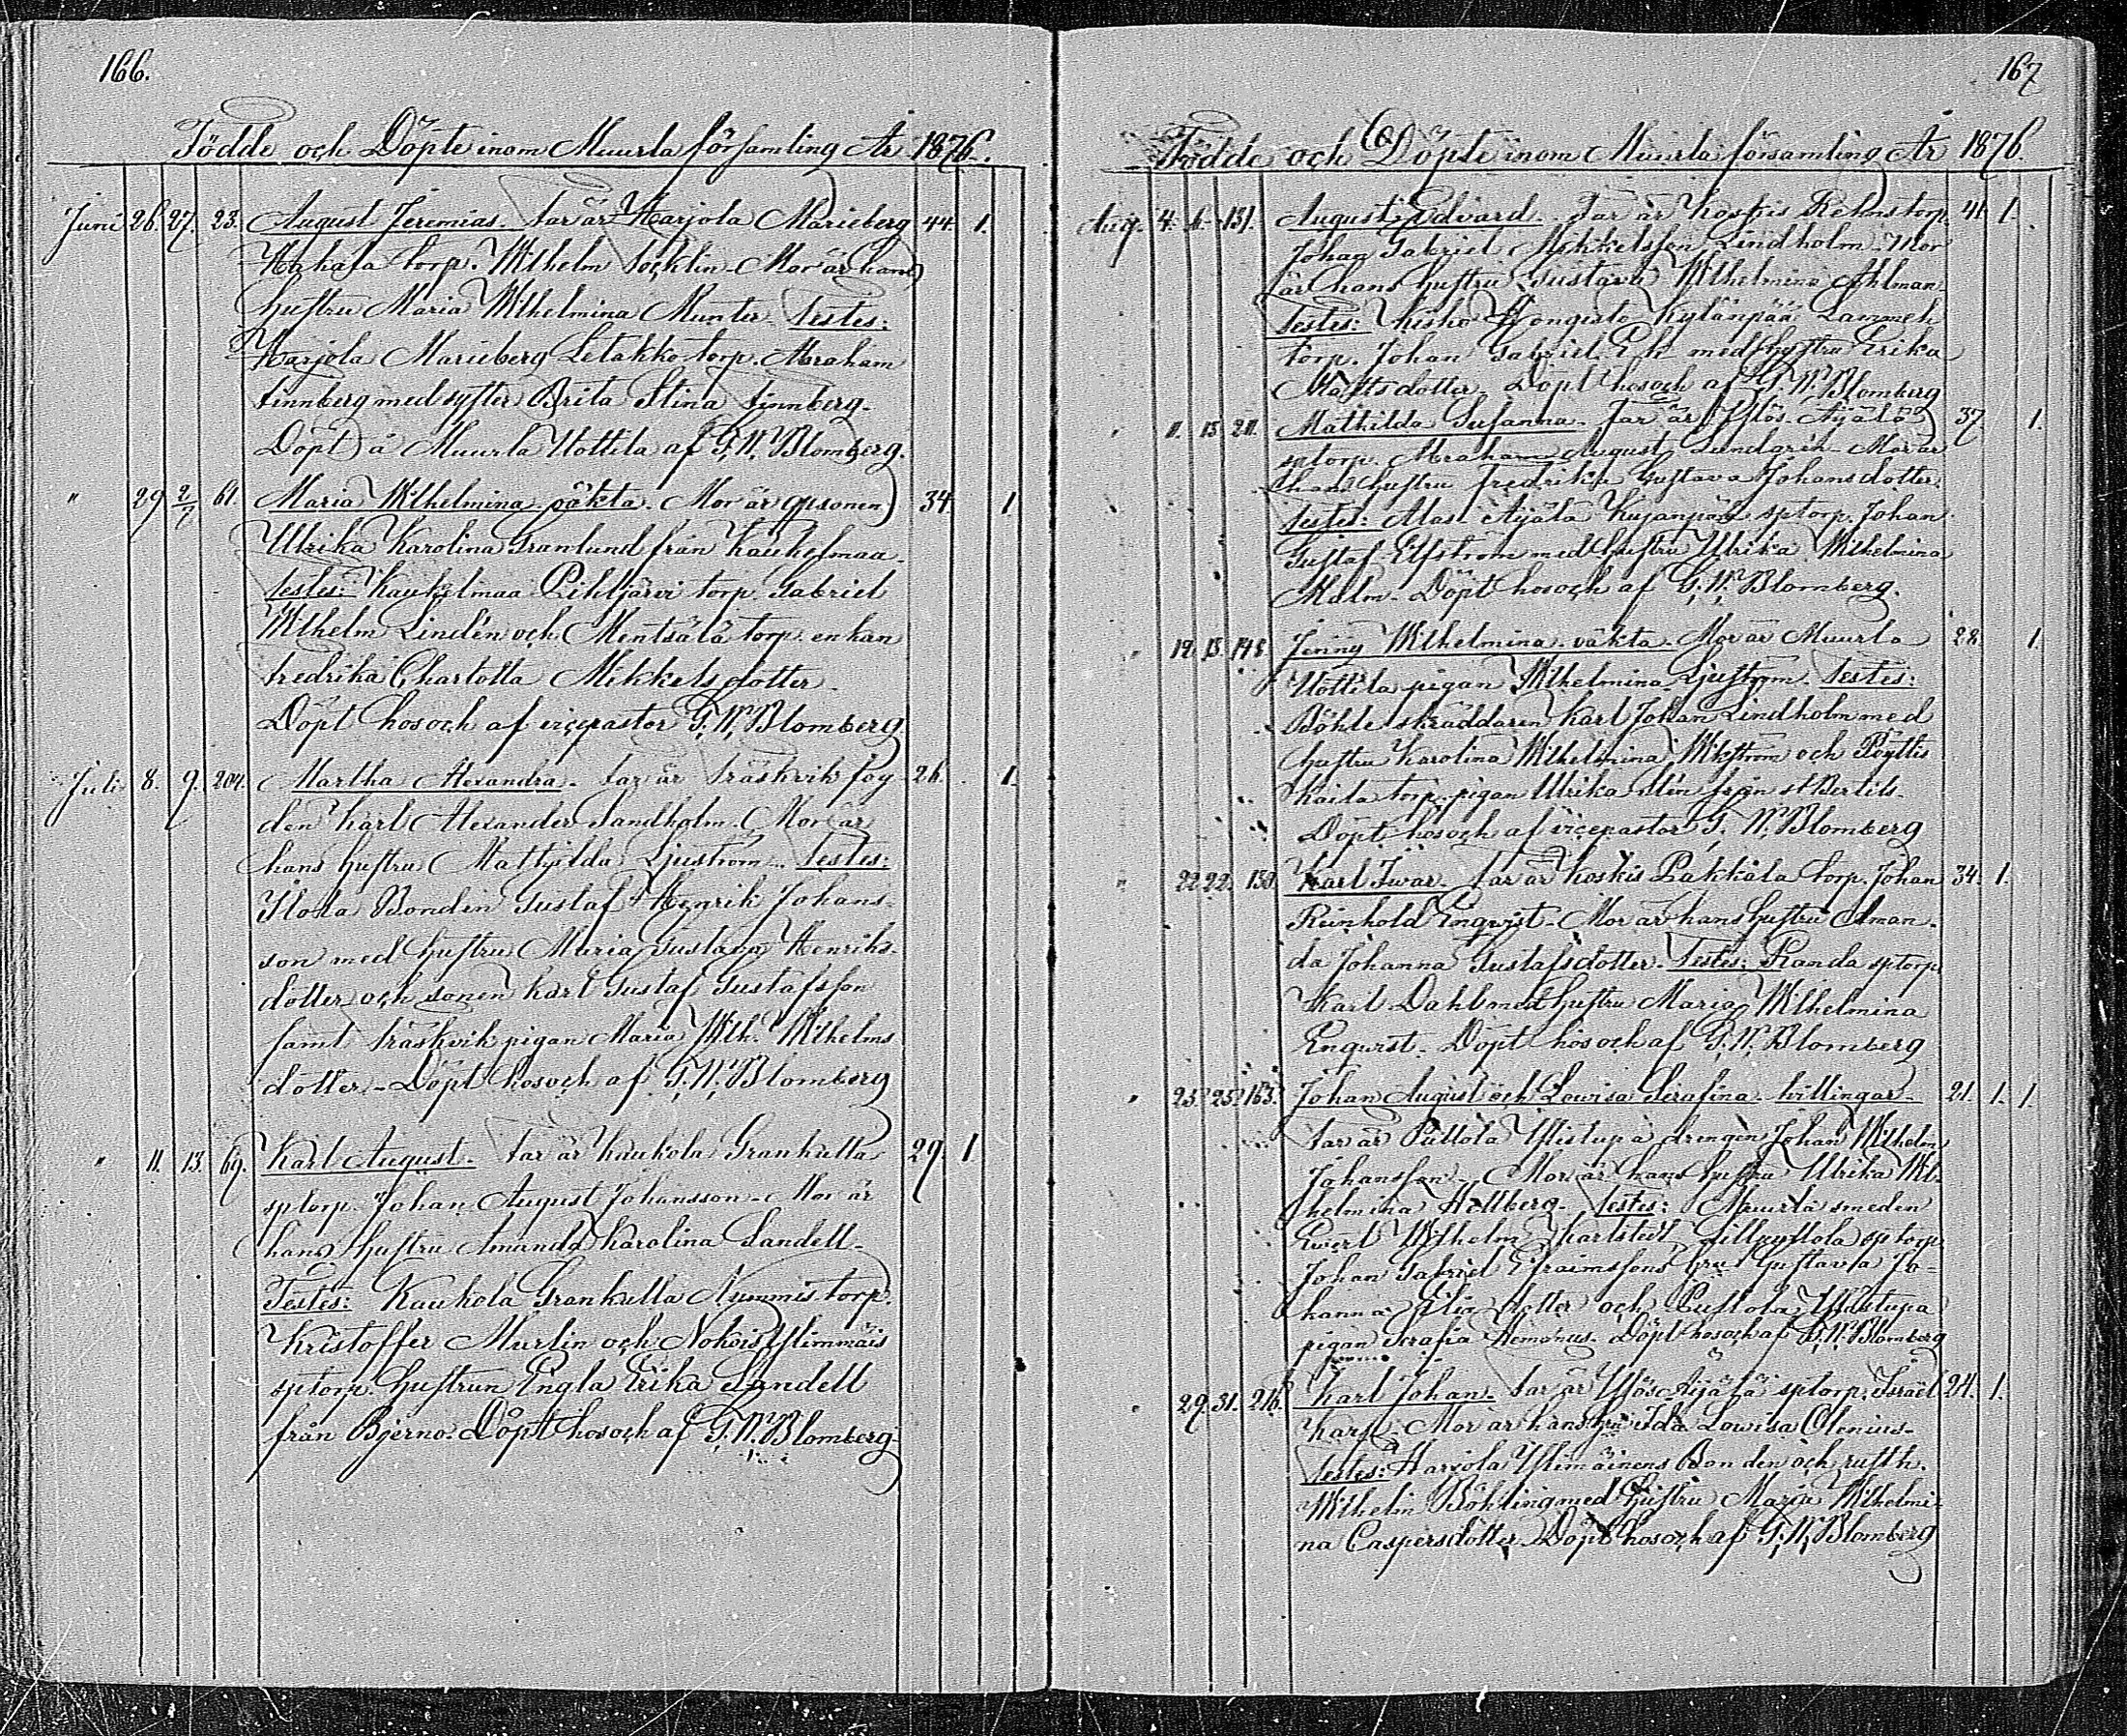 166.
Födde och Döpte inom Muurla församling År 1876.
Juni 26. 27. 23. August Jeremias. Far är Harjola Marieberg 44. 1.
Hakala torp. Wilhelm Socklin. Mor är hans
hustru Maria Wilhelmina Munter. Testes:
Harjola Marieberg Letakko torp. Abraham
Finnberg med syster Brita Stina Finnberg.
Döpt å Muurla Uottila af G. W. Blomberg.
" 29 2/7 61. Maria Wilhelmina oäkta. Mor är qpsonen 34. 1
Ulrika Karolina Granlund från Kaukelmaa.
Testes: Kaukelmaa Pihljärvi torp. Gabriel
Wilhelm Lindén och Mentsälä torp. enkan
Fredrika Charlotta Mikkelsdotter.
Döpt hos och af vicepastor G. W. Blomberg.
Juli 8. 9. 204. Martha Alexandra. Far är Träskvik fog- 26. 1.
den Karl Alexander Sandholm. Mor är
hans hustru Mathilda Ljuström. Testes:
Ilola Bonden Gustaf Henrik Johans-
son med hustru Maria Gustava Henriks-
dotter och sonen Karl Gustaf Gustafsson
samt Träskvik pigan Maria Wilh. Wilhelms
dotter. Döpt hos och af G. W. Blomberg
" 11. 13. 69. Karl August. Far är Kaukola Grankulla 29. 1.
sptorp. Johan August Johansson. Mor är
hans hustru Amanda Karolina Sandell.
Testes: Kaukola Grankulla Nummis torp.
Kristoffer Murlin och Nokois Ylimmäis
sptorp. hustrun Engla Erika Sandell
från Bjerno. Döpt hos och af G. W. Blomberg.
167
Födde och Döpte inom Muurla församling År 1876.
Aug. 4. 6. 131. August Edvard. Far är Koskis Rehns torp. 41. 1.
Johan Gabriel Mikkelsson Lindholm. Mor
är hans hustru Gustava Wilhelmina Ahlman.
Testes: Kisko Hongisto Kylänpää Lammeh
torp. Johan Gabriel Ek med hustru Erika
Mattsdotter. Döpt hos och af G. W. Blomberg
" 11. 13. 211. Mathilda Susanna. Far är Yltös Äijälä 37 1.
sptorp. Abraham August Lindqvih. Mor är
hans hustru Fredrika Gustava Johansdotter.
Testes: Alas Äijälä Kujanpää sptorp. Johan
Gustaf Elfström med hustru Ulrika Wilhelmina
Malm. Döpt hos och af G. W. Blomberg.
" 12. 13. 148. Jenny Wilhelmina. oäkta. Mor är Muurla 28. 1.
Uottila pigan Wilhelmina Ljuström. Testes:
Böhle skräddaren Karl Johan Lindholm med
hustru Karolina Wilhelmina Wikström och Pöyltis
Kaila torp. pigan Ulrika Elin från St Bertils.
Döpt hos och af vicepastor G. W. Blomberg
" 22. 22. 130. Karl Iwar. Far är Koskis Pakkala torp. Johan 34. 1.
Reinhold Enqvist. Mor är hans hustru Aman-
da Johanna Gustafsdotter. Testes: Randa sptorp
Karl Dahl med hustru Maria Wilhelmina
Enqvist. Döpt hos och af G. W. Blomberg
" 23. 25. 163. Johan August och Lowisa Serafina tvillingar. 21. 1. 1.
Far är Pullola Ylistupa drengen Johan Wilhelm
Johansson. Mor är hans hustru Ulrika Wil-
helmina Hellberg. Testes: Muurla smeden
Evert Wilhelm Karlstedt, Lilluystola sptorp.
Johan Gabriel Efraimssons hru Gustava Jo-
hanna Elia dotter och Pullola Ylistupa
pigan Serafia Homanus. Döpt hos och af G. W. Blomberg
" 29. 31. 216. Karl Johan. Far är Yltös Äijälä sptorp. Israel 24. 1.
Karf. Mor är hans hru Ida Lowisa Olenius.
Testes: Harjola Ylimäinens Bonden och rusth.
Wilhelm Böhling med hustru Maria Wilhelmi-
na Caspersdotter. Döpt hos och af G. W. Blomberg